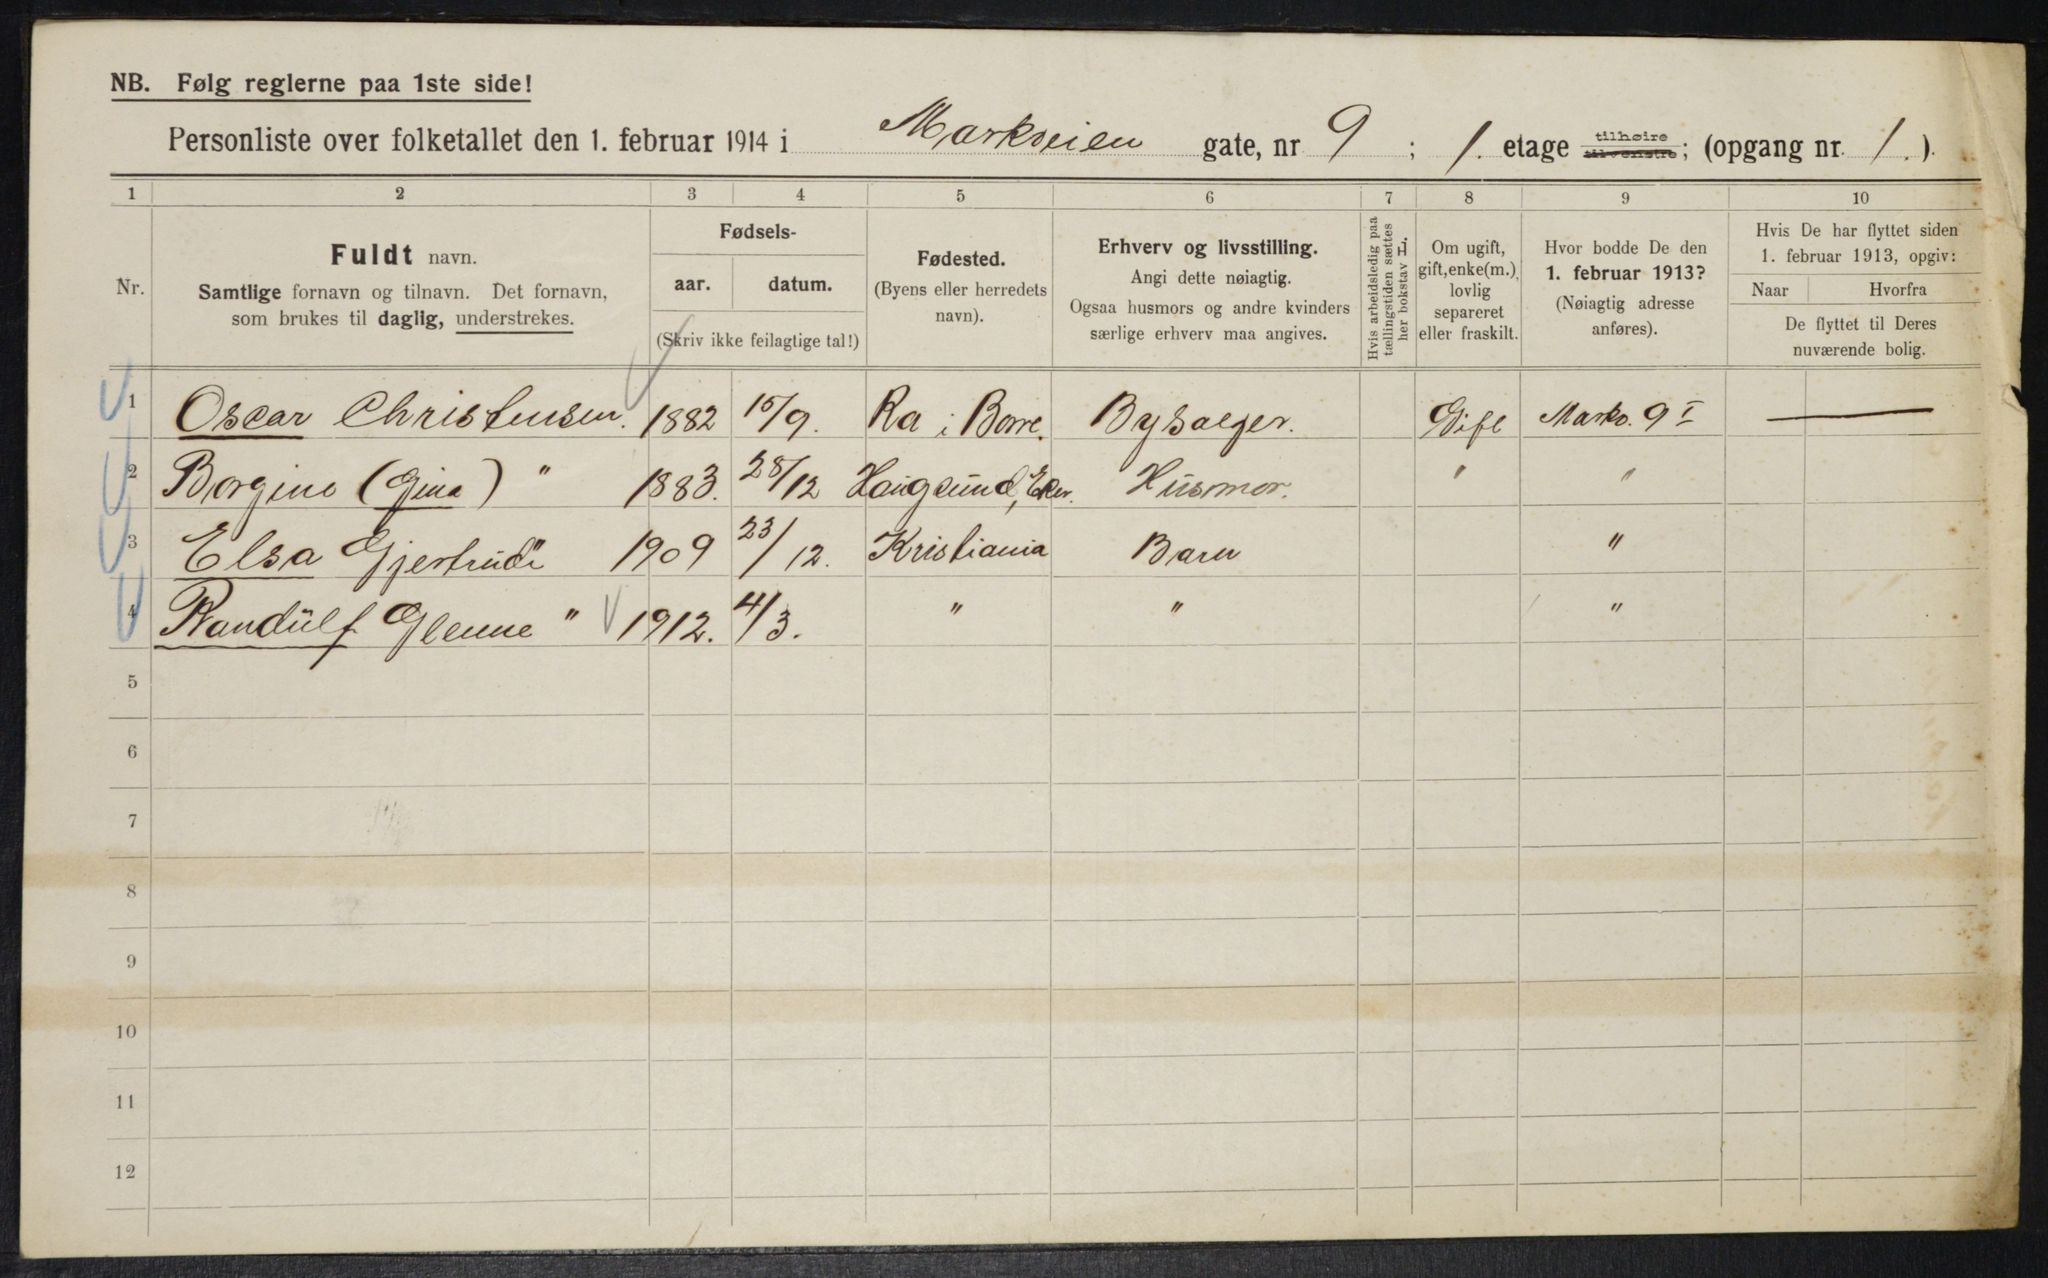 NB. Følg reglerne paa 1ste side!
Personliste over folketallet den 1. februar 1914 i Markveien gate, nr 9 ; 1. etage tilhøire tilvenstre; (opgang nr. 1.).
1 2 3 4 5 6 7 8 9 10
Nr.
Fuldt navn.
Samtlige fornavn og tilnavn. Det fornavn,
som brukes til daglig, understrekes.
Fødsels-
aar. datum.
(Skriv ikke feilagtige tal!)
Fødested.
(Byens eller herredets
navn).
Erhverv og livsstilling.
Angi dette nøiagtig.
Ogsaa husmors og andre kvinders
særlige erhverv maa angives.
Hvis arbeidsledig paa
tællingstiden sættes
her bokstav L.
Om ugift,
gift, enke(m.),
lovlig
separeret
eller fraskilt.
Hvor bodde De den
1. februar 1913?
(Nøiagtig adresse
anføres).
Hvis De har flyttet siden
1. februar 1913, opgiv:
Naar Hvorfra
De flyttet til Deres
nuværende bolig.
1 Oscar Christensen. 1882 15/9. Ra i Borre. Bysælger. Gift Markv. 9 I —
2 Borgine (Gina) " 1883. 28/12 Hougsund, Eker. Husmor. " "
3 Elsa Gjertrud " 1909 23/12. Kristiania Barn "
4 Randulf Glenne " 1912. 4/3. " " "
5
6
7
8
9
10
11
12